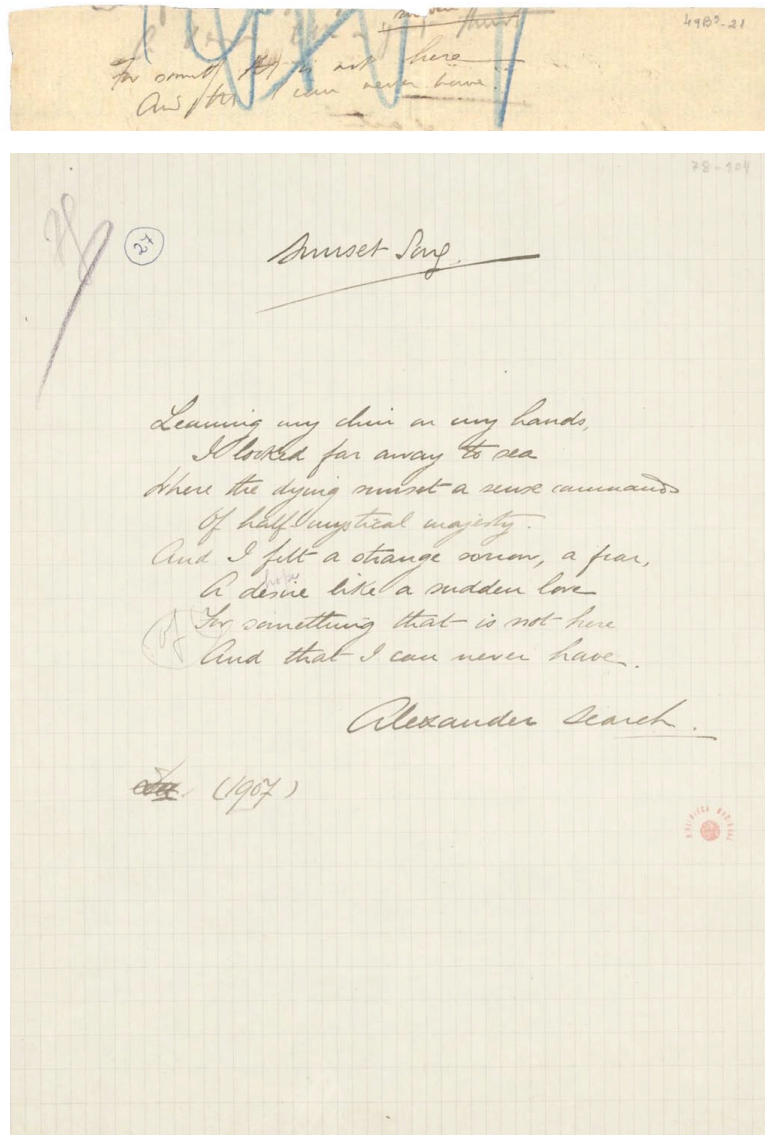 49B5-21
For someth tht is not here
And tht I can never have.
78-104
27
Sunset Song.
Leaning my chin on my hands,
I looked far away to sea
Where the dying sunset a sense commands
Of half-mystical majesty.
And I felt a strange sorrow, a fear,
hope
A desire like a sudden love
of
For something that is not here
And that I can never have.
Alexander Search.
(1907)
BIBLIOTECA NACIONAL